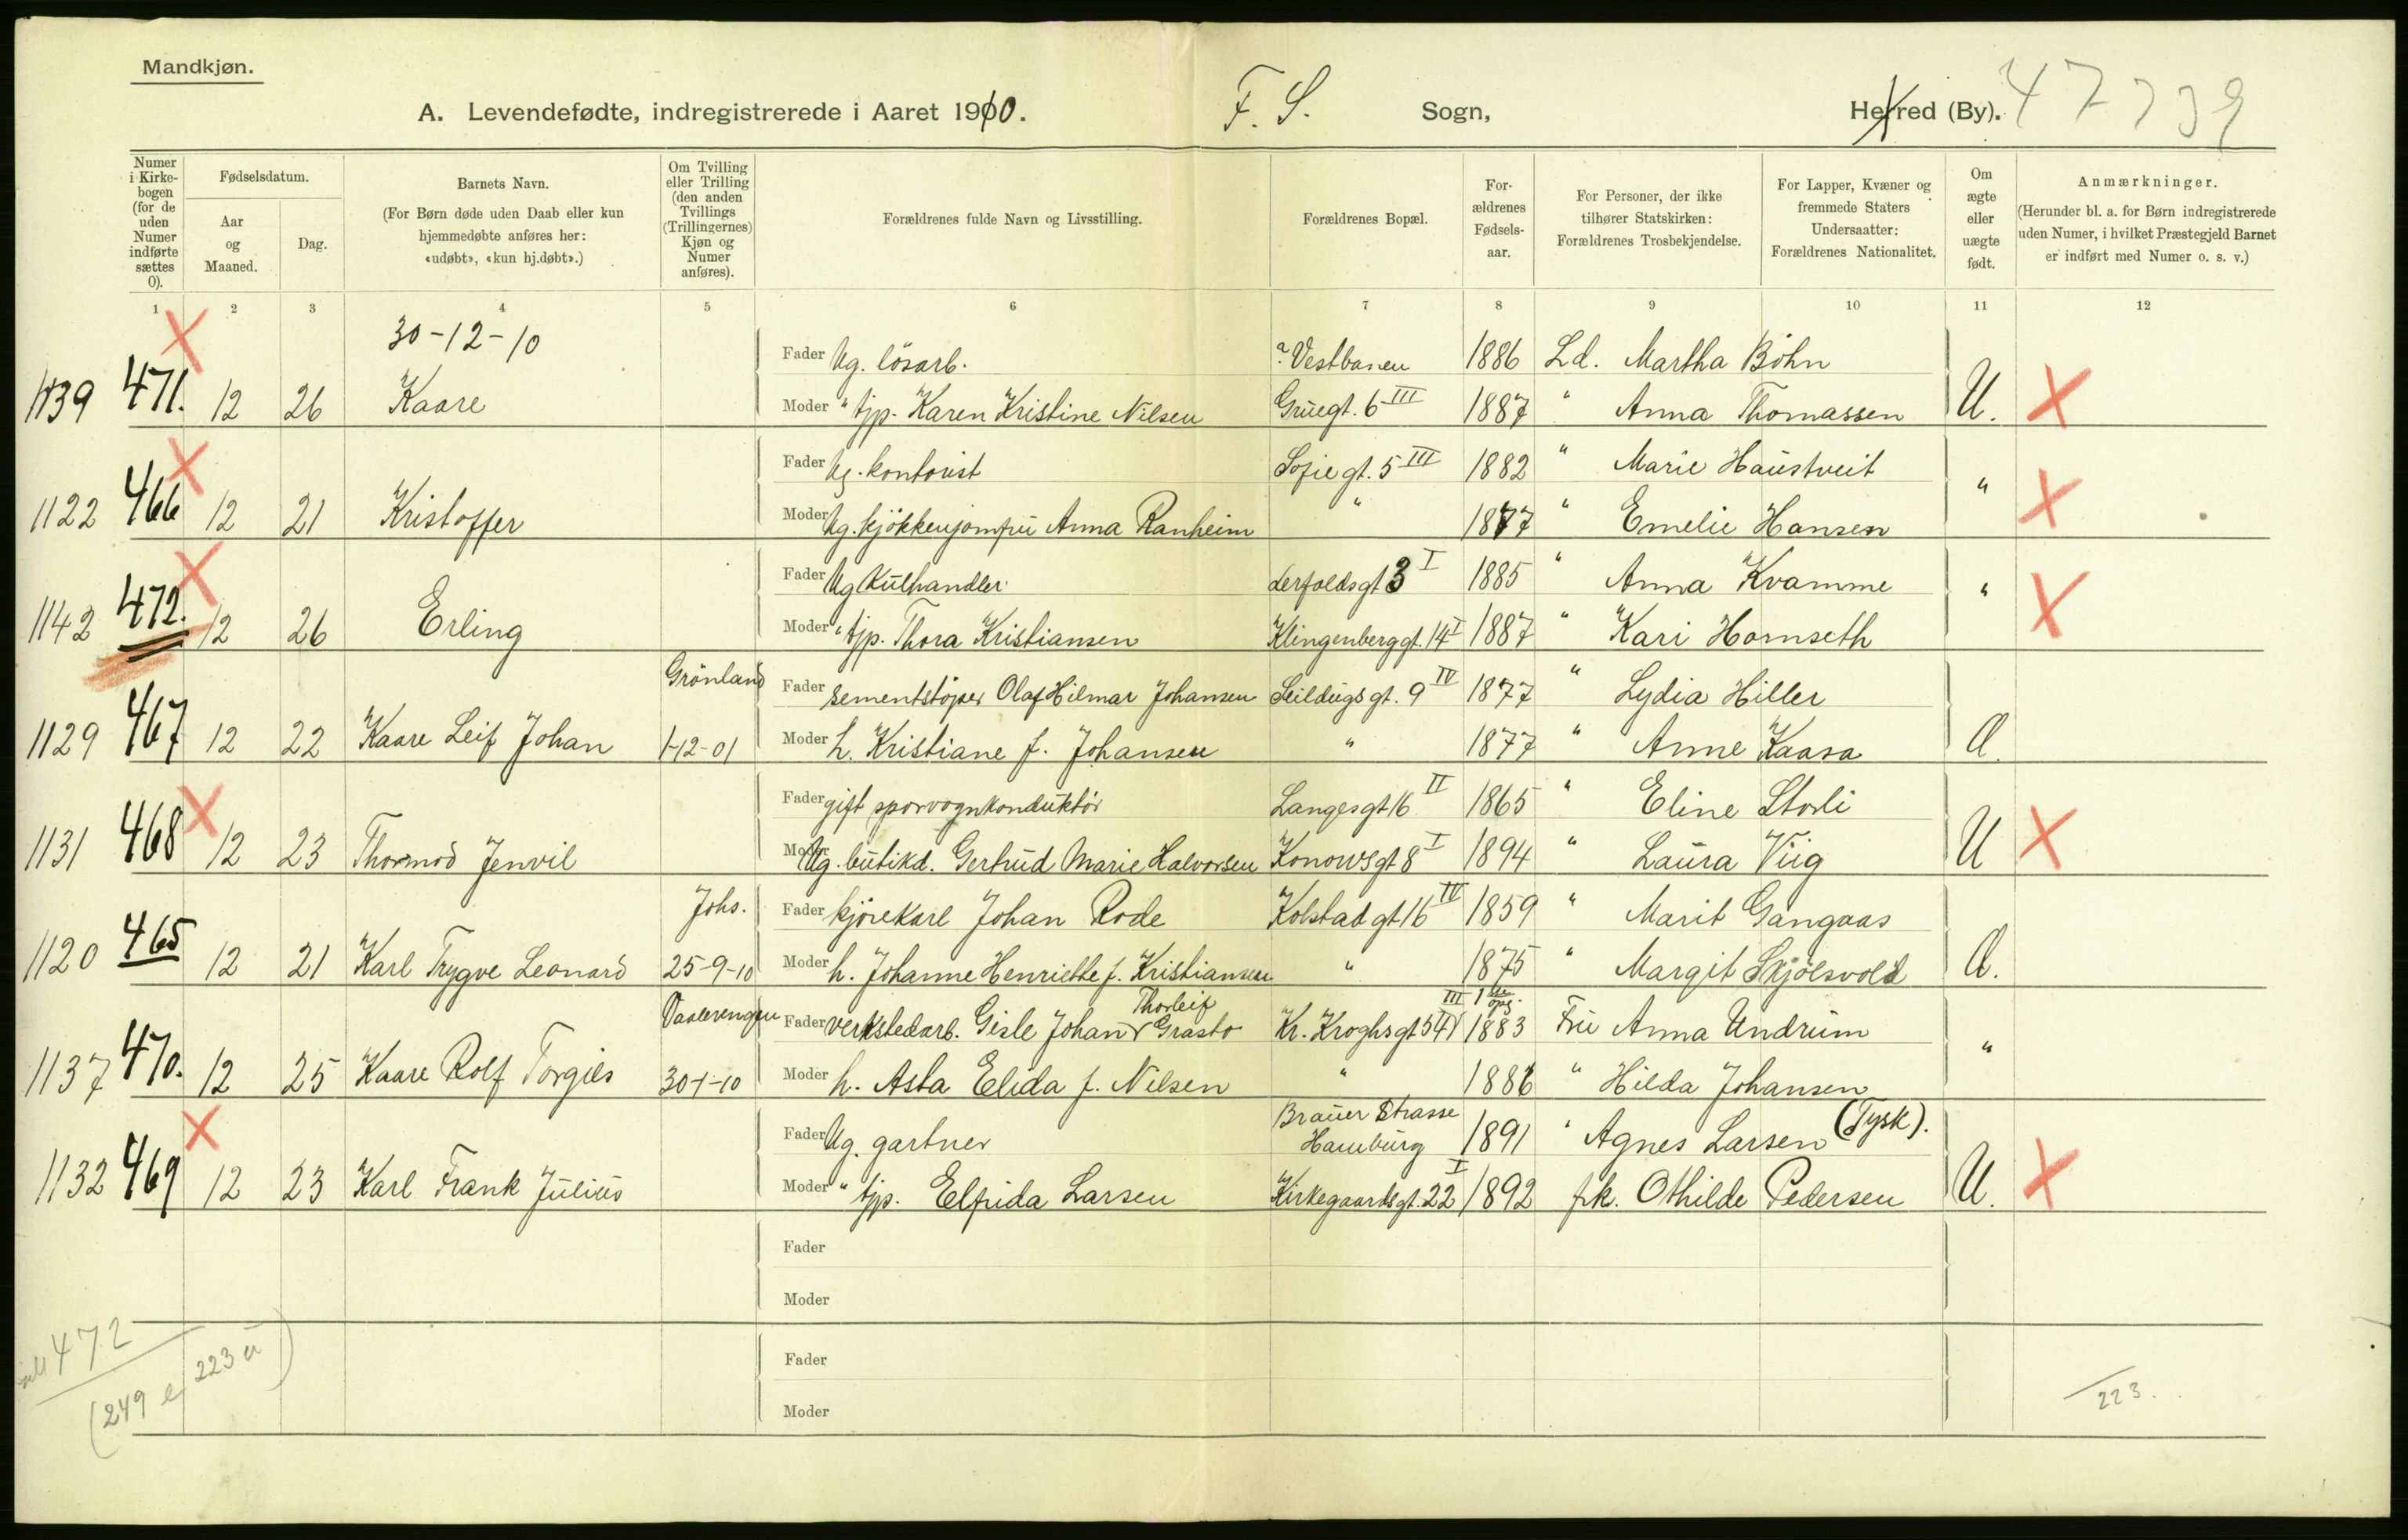 Mandkjøn.
A. Levendefødte, indregistrerede i Aaret 1910. F. S. Sogn, Herred (By). 47739
Numer i Kirkebogen (for de uden Numer indførte sættes 0).
Fødselsdatum.
Aar og Maaned.
Dag.
Barnets Navn.
(For Børn døde uden Daab eller kun hjemmedøbte anføres her: «udøbt», «kun hj.døbt».)
Om Tvilling eller Trilling (den anden Tvillings (Trillingernes) Kjøn og Numer anføres).
Forældrenes fulde Navn og Livsstilling.
Forældrenes Bopæl.
Forældrenes Fødselsaar.
For Personer, der ikke tilhører Statskirken: Forældrenes Trosbekjendelse.
For Lapper, Kvæner og fremmede Staters Undersaatter: Forældrenes Nationalitet.
Om ægte eller uægte født.
Anmærkninger.
(Herunder bl. a. for Børn indregistrerede uden Numer, i hvilket Præstegjeld Barnet er indført med Numer o. s. v.)
1 2 3 4 5 6 7 8 9 10 11 12
30-12-10
Fader Ug. lösarb. Vestbanen 1886 Ld. Martha Böhn
1139 471. 12 26 Kaare Moder " tjp. Karen Kristine Nilsen Gruegt. 6 III 1887 " Anna Thomassen U.
Fader Ug. kontorist Sofiegt. 5 III 1882 " Marie Haustveit
1122 466 12 21 Kristoffer Moder Ug. kjökkenjomfru Anna Ranheim " 1877 " Emelie Hansen "
Fader Ug Kulhandler 3 I 1885 " Anna Kvamme
1142 472. 12 26 Erling Moder " tjp. Thora Kristiansen Klingenberggt. 14 I 1887 " Kari Homseth "
Grönland Fader sementstöper Olaf Hilmar Johansen Seildugsgt. 9 IV 1877 " Lydia Hiller
1129 467 12 22 Kaare Leif Johan 1-12-01 Moder h. Kristiane f. Johansen " 1877 " Anne Kaasa A.
Fader gift sporvognkonduktör Langesgt 16 II 1865 " Eline Storli
1131 468 12 23 Thormod Jenvil Moder Ug. butikd. Gertrud Marie Halvorsen Konowsgt 8 I 1894 " Laura Viig U
Johs. Fader kjörekarl Johan Rode Kolstadgt 16 IV 1859 " Marit Gangaas
1120 465 12 21 Karl Trygve Leonard 25-9-10 Moder h. Johanne Henriette f. Kristiansen " 1875 " Margit Skjölsvold A.
Vaalerengen Thorleif III 1ste opg.
Fader verkstedarb. Gisle Johan Grasto Kr. Kroghsgt 54 1883 Fru Anna Undrum
1137 470. 12 25 Kaare Rolf Torgils 30-1-10 Moder h. Asta Elida f. Nilsen " 1886 " Hilda Johansen "
Brauer Strasse
Fader Ug. gartner Hamburg 1891 " Agnes Larsen (Tysk).
1132 469 12 23 Karl Frank Julius Moder " tjp. Elfrida Larsen Kirkegaardsgt. 22 I 1892 frk. Othilde Pedersen U.
Fader
Moder
472
Fader
(249 e 223 u)
223.
Moder